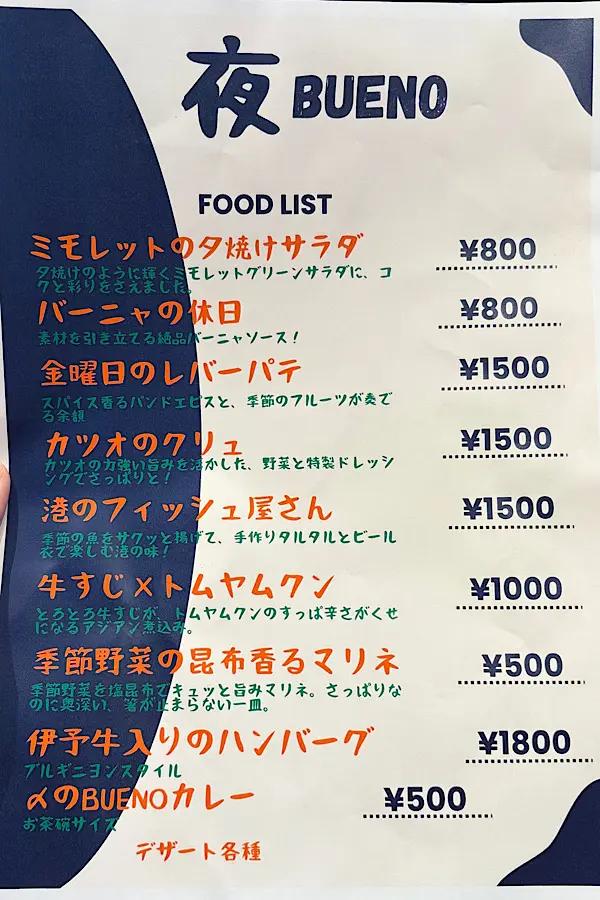 夜 BUENO
FOOD LIST
ミモレットの夕焼けサラダ ¥800
夕焼けのように輝くミモレットグリーンサラダに、コ
クと彩りをさえました。
バーニャの休日 ¥800
素材を引き立てる絶品バーニャソース！
金曜日のレバーパテ ¥1500
スパイス香るパンドエピスと、季節のフルーツが奏で
る余韻
カツオのクリュ ¥1500
カツオの力強い旨みを活かした、野菜と特製ドレッシ
ングでさっぱりと！
港のフィッシュ屋さん ¥1500
季節の魚をサクッと揚げて、手作りタルタルとビール
衣で楽しむ港の味！
牛すじ×トムヤムクン ¥1000
とろとろ牛すじが、トムヤムクンのすっぱ辛さがくせ
になるアジアン煮込み。
季節野菜の昆布香るマリネ ¥500
季節野菜を塩昆布でキュッと旨みマリネ。さっぱりな
のに奥深い、箸が止まらない一皿。
伊予牛入りのハンバーグ ¥1800
ブルギニヨンスタイル
〆のBUENOカレー ¥500
お茶碗サイズ
デザート各種